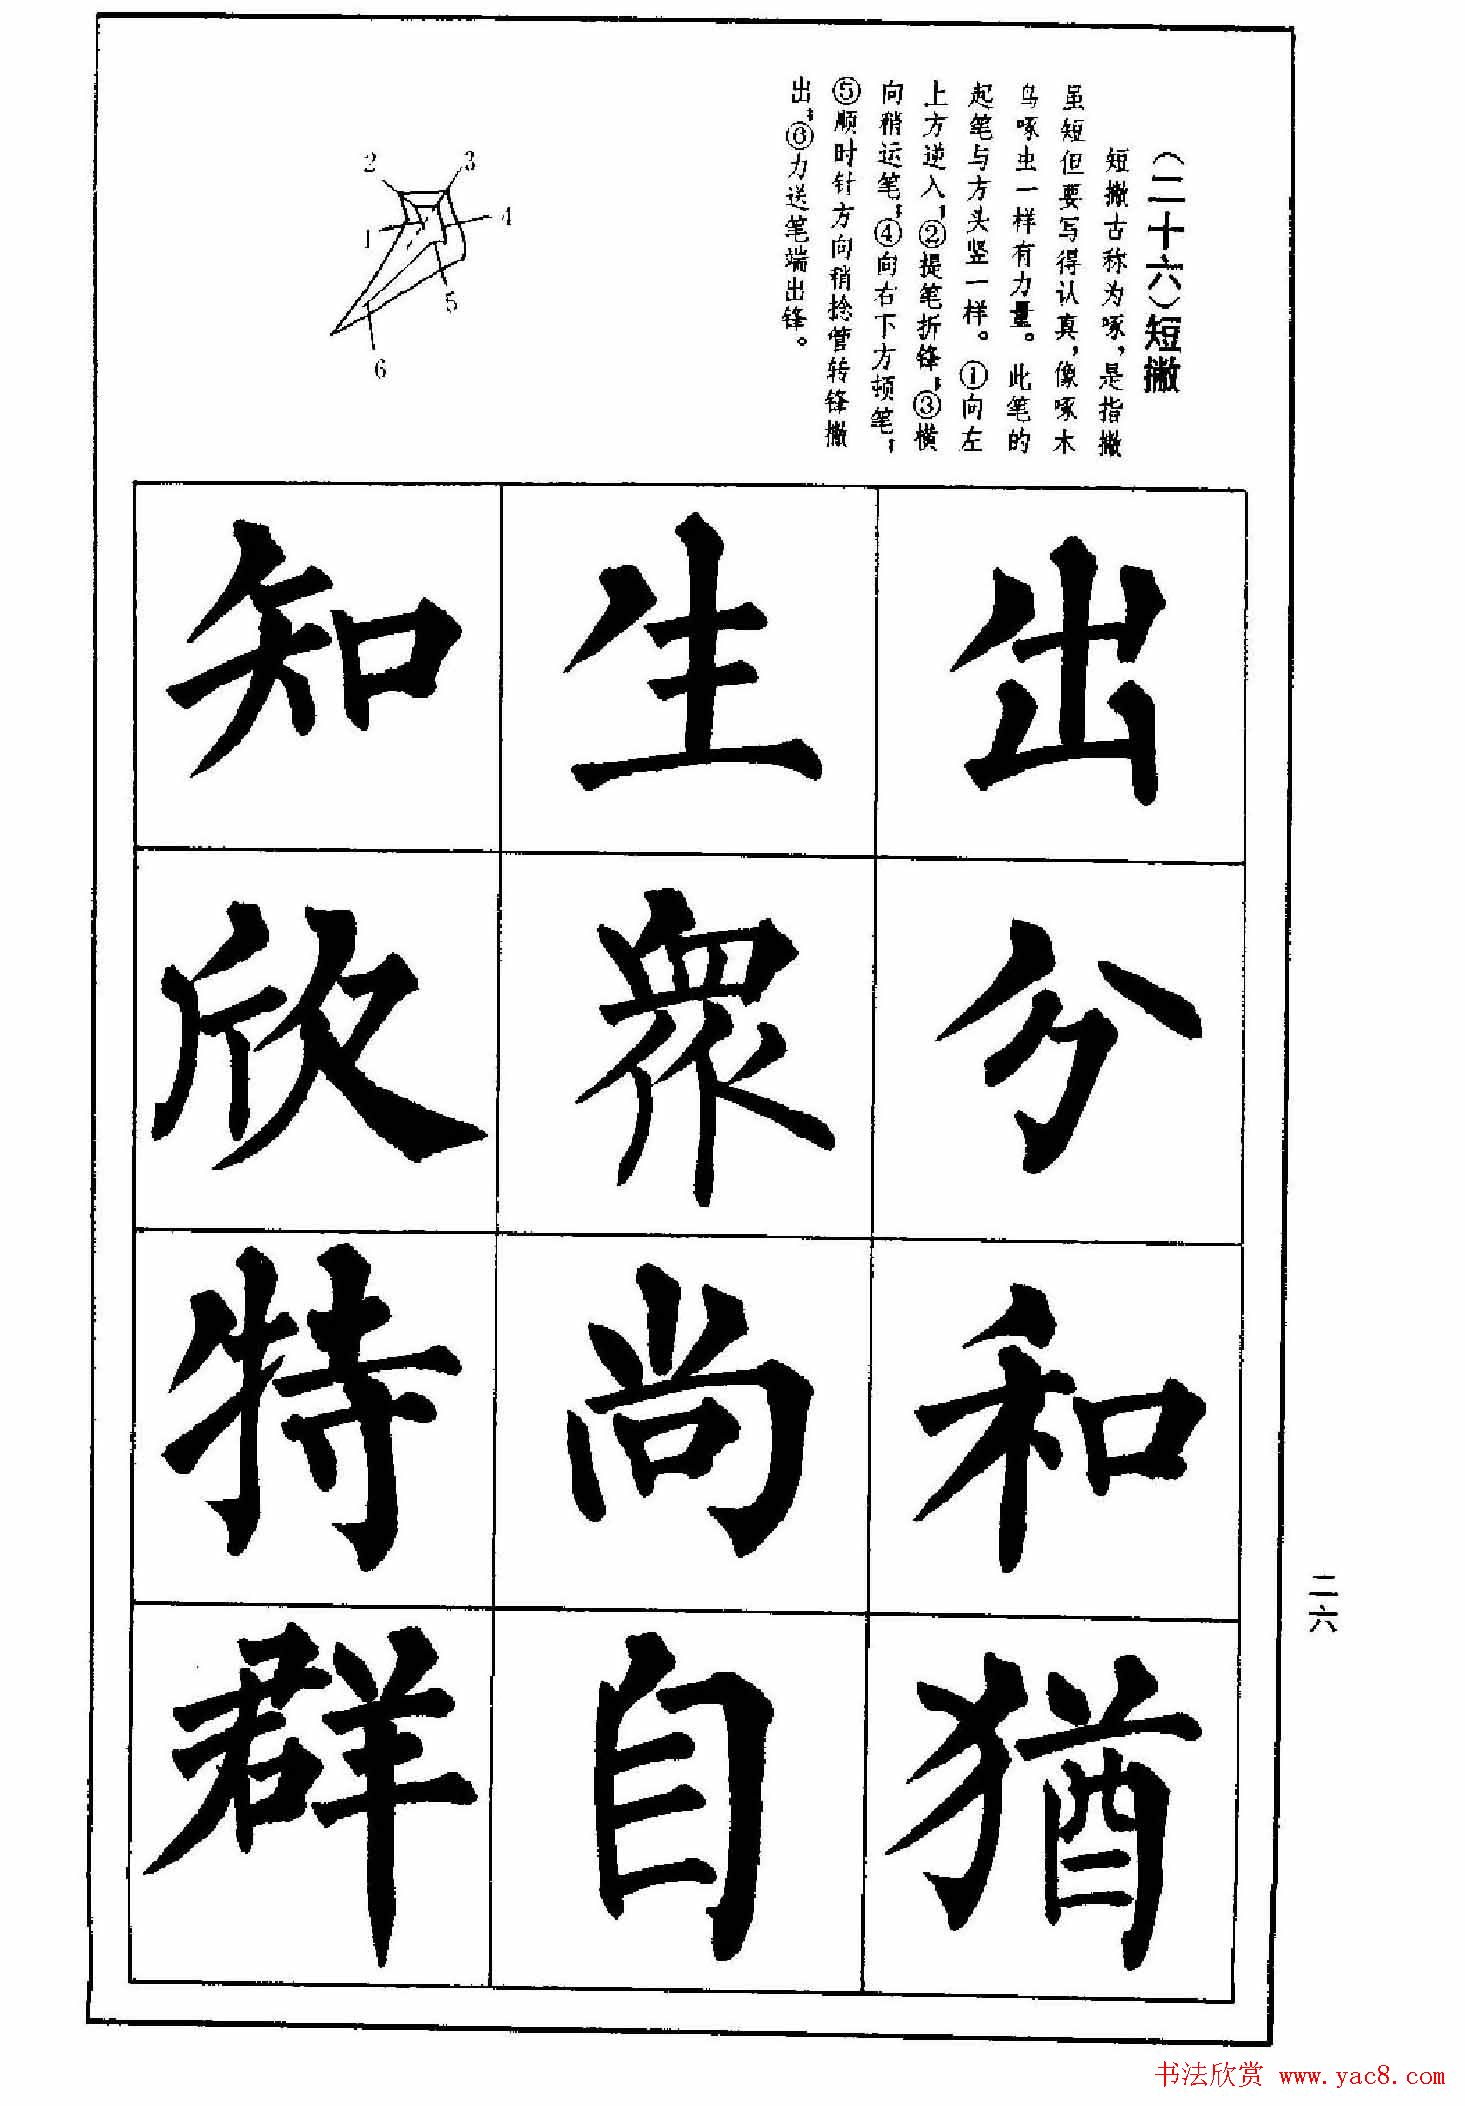 （二十六）短撇
短撇古称为啄，是指撇
虽短但要写得认真，像啄木
鸟啄虫一样有力量。此笔的
起笔与方头竖一样。①向左
上方逆入，②提笔折锋，③横
向稍运笔，④向右下方顿笔，
⑤顺时针方向稍捻管转锋撇
出，⑥力送笔端出锋。
1
2
3
4
5
6
出
分
和
猶
生
眾
尚
自
知
欣
特
群
二六
书法欣赏 www.yac8.com